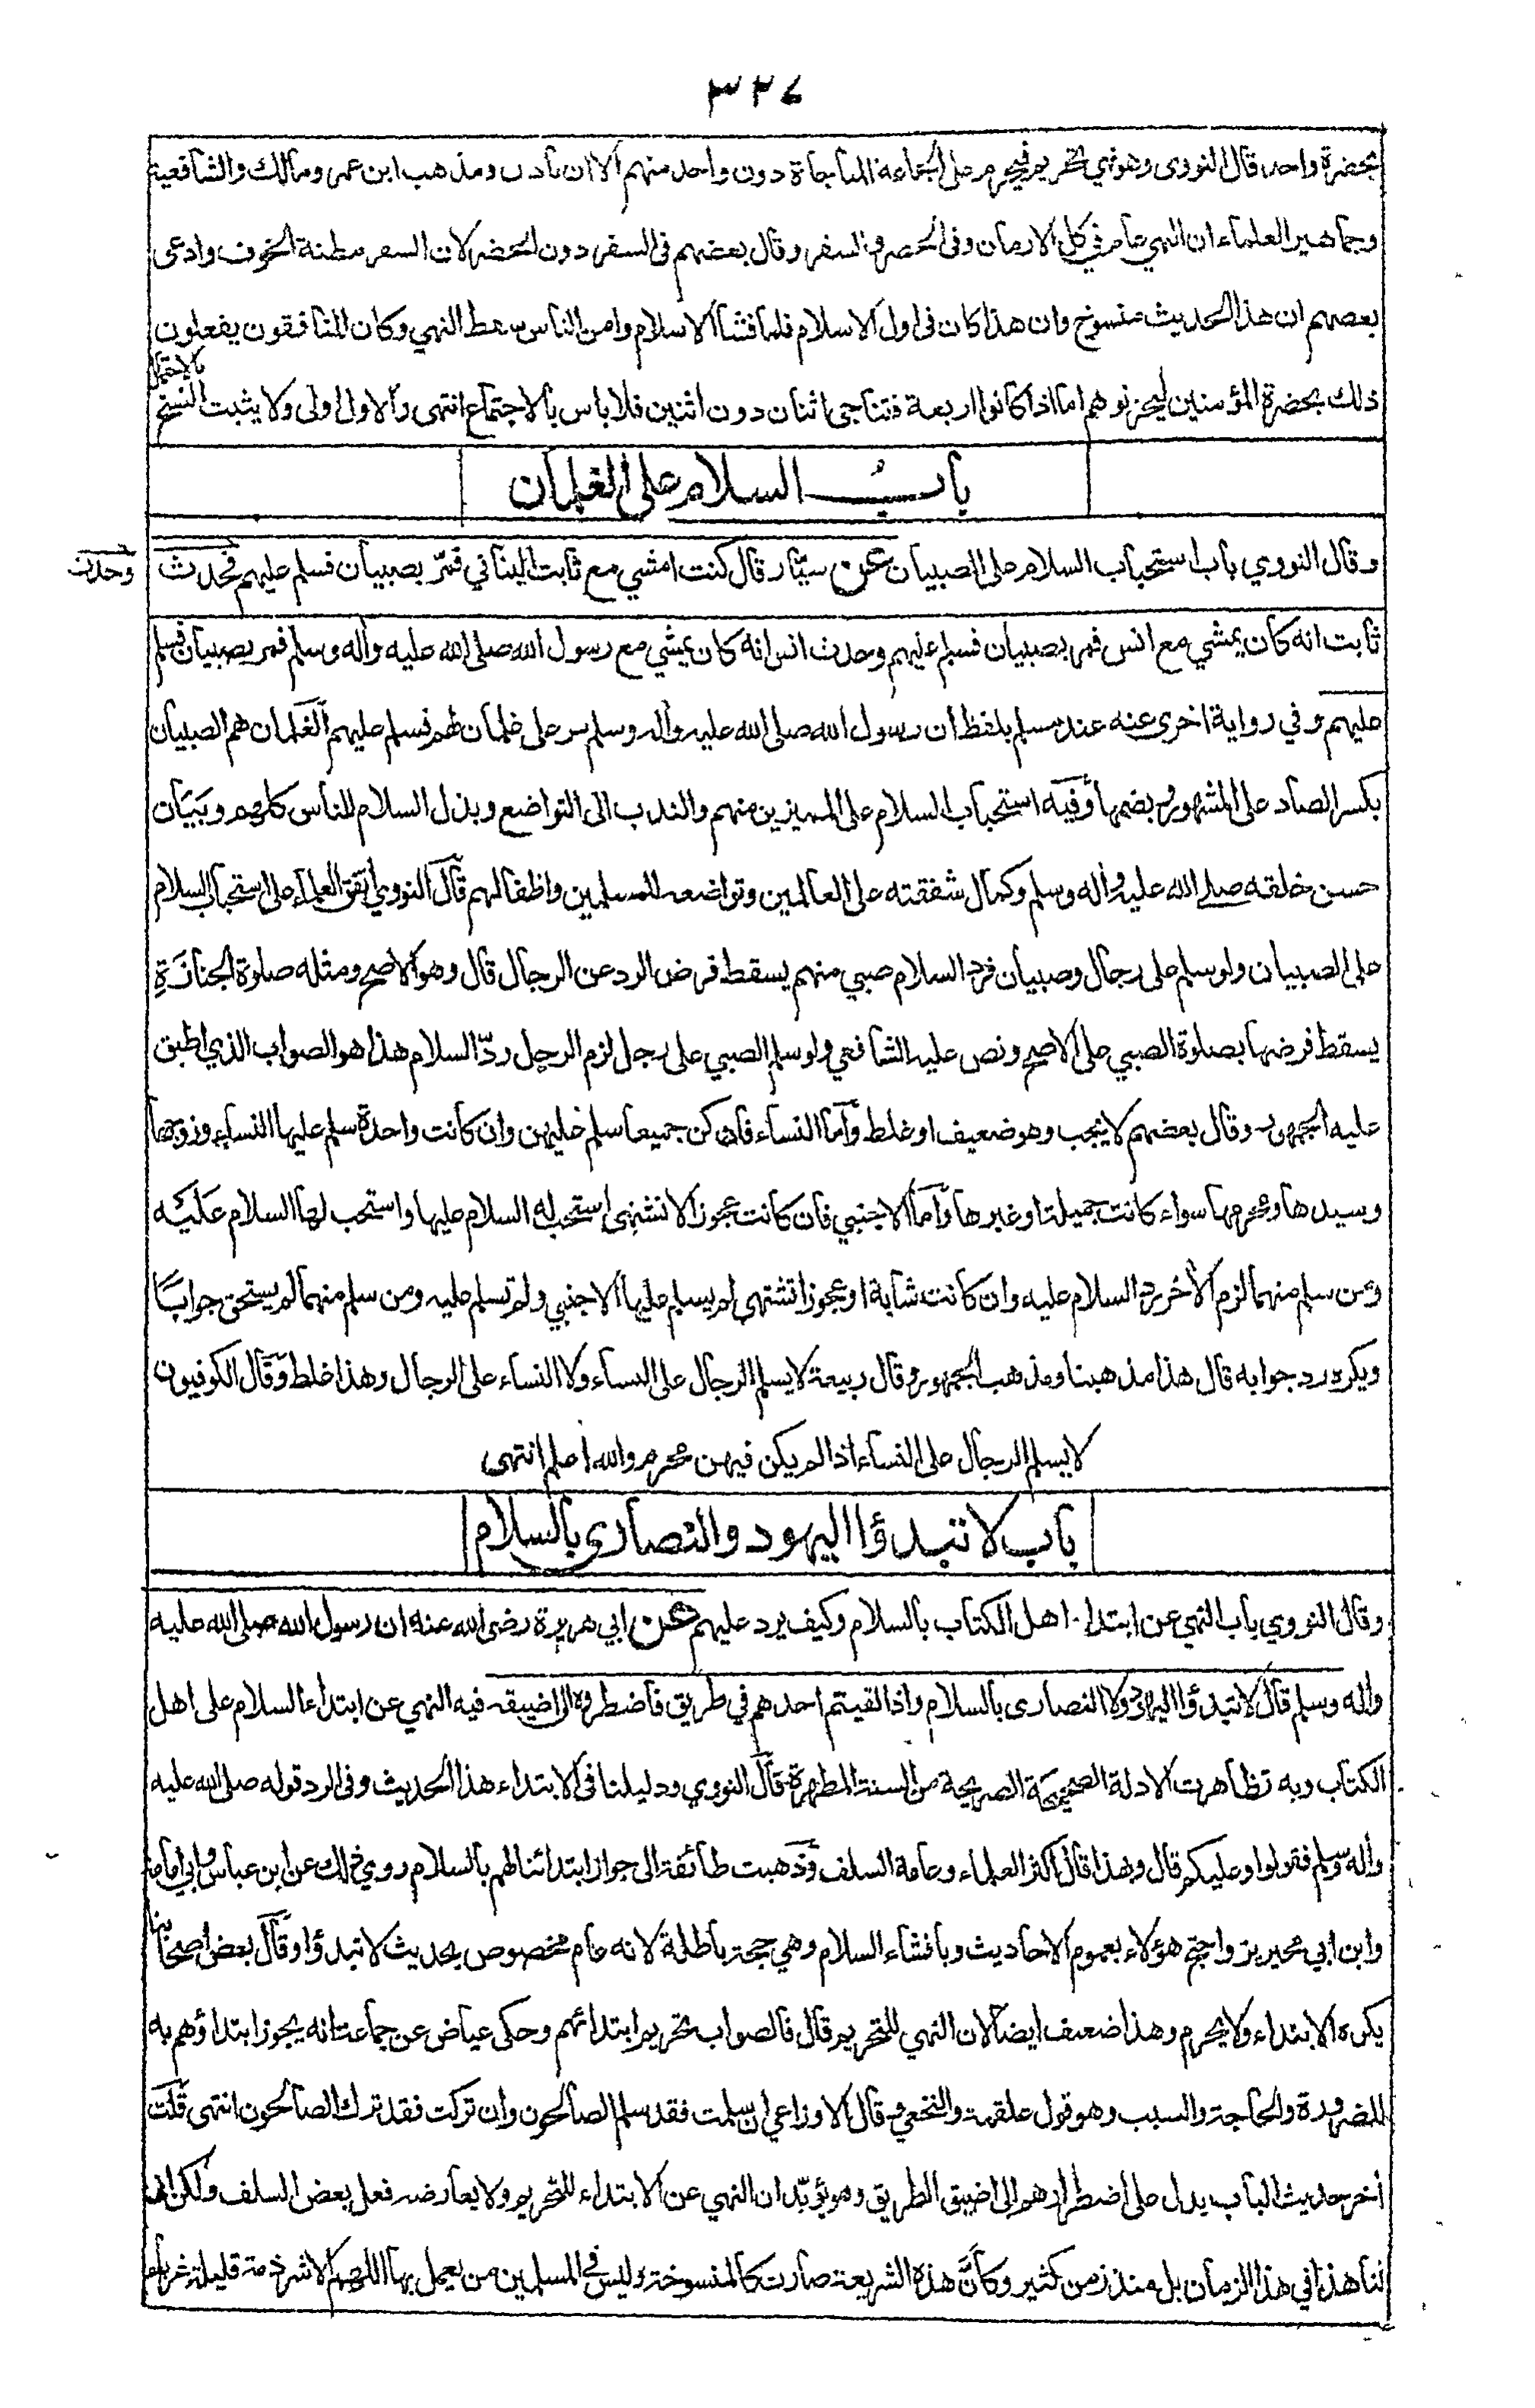 ٣٢٤
بحضرة واحد قال النووي وهو نهي تحريم فيحرم على الجماعة المناجاة دون واحد منهم الا ان ياذن ومذهب ابن عمر ومالك والشافعية
وجماهير العلماء ان النهي عام في كل الازمان وفي الحضر والسفر وقال بعضهم في السفر دون الحضر لان السفر مظنة الخوف وادعى
بعضهم ان هذا الحديث منسوخ وان هذا كان في اول الاسلام فلما فشا الاسلام وامن الناس سقط النهي وكان المنافقون يفعلون
ذلك بحضرة المؤمنين ليحزنوهم اما اذا كانوا اربعة فتناجى اثنان دون اثنين فلا باس بالاجتماع انتهى والاول اولى ولا يثبت النسخ بالاحتمال
باب السلام على الغلمان
وقال النووي باب استحباب السلام على الصبيان عن سيّار قال كنت امشي مع ثابت البناني فمرّ بصبيان فسلم عليهم فحدث
وحدث
ثابت انه كان يمشي مع انس فمر بصبيان فسلم عليهم وحدث انس انه كان يمشي مع رسول الله صلى الله عليه واله وسلم فمر بصبيان فسلم
عليهم وفي رواية اخرى عنه عند مسلم بلفظ ان رسول الله صلى الله عليه واله وسلم مر على غلمان لهم فسلم عليهم الغلمان هم الصبيان
بكسر الصاد على المشهور وبضمها وفيه استحباب السلام على المميزين منهم والندب الى التواضع وبذل السلام للناس كلهم وبيان
حسن خلقه صلى الله عليه واله وسلم وكمال شفقته على العالمين وتواضعه للمسلمين واطفالهم قال النووي اتفق العلماء على استحباب السلام
على الصبيان ولو سلم على رجال وصبيان فرد السلام صبي منهم يسقط فرض الرد عن الرجال قال وهو الاصح ومثله صلوة الجنازة
يسقط فرضها بصلوة الصبي على الاصح ونص عليه الشافعي ولو سلم الصبي على رجل لزم الرجل ردّ السلام هذا هو الصواب الذي اطبق
عليه الجمهور وقال بعضهم لا يجب وهو ضعيف او غلط واما النساء فان كن جميعا سلم عليهن وان كانت واحدة سلم عليها النساء وزوجها
وسيدها ومحرمها سواء كانت جميلة او غيرها واما الاجنبي فان كانت عجوزا لا تشتهى استحب له السلام عليها واستحب لها السلام عليه
ومن سلم منهما لزم الاخر رد السلام عليه وان كانت شابة او عجوزا تشتهى لم يسلم عليها الاجنبي ولم تسلم عليه ومن سلم منهما لم يستحق جوابا
ويكره رد جوابه قال هذا مذهبنا ومذهب الجمهور وقال ربيعة لا يسلم الرجال على النساء ولا النساء على الرجال وهذا غلط وقال الكوفيون
لا يسلم الرجال على النساء اذا لم يكن فيهن محرم والله اعلم انتهى
باب لا تبدؤا اليهود والنصارى بالسلام
وقال النووي باب النهي عن ابتداء اهل الكتاب بالسلام وكيف يرد عليهم عن ابي هريرة رضى الله عنه ان رسول الله صلى الله عليه
واله وسلم قال لا تبدؤا اليهود ولا النصارى بالسلام واذا لقيتم احدهم في طريق فاضطروه الى اضيقه فيه النهي عن ابتداء السلام على اهل
الكتاب وبه تظاهرت الادلة الصحيحة الصريحة من السنة المطهرة قال النووي ودليلنا في الابتداء هذا الحديث وفي الرد قوله صلى الله عليه
واله وسلم فقولوا وعليكم قال وبهذا قال اكثر العلماء وعامة السلف وذهبت طائفة الى جواز ابتدائنا لهم بالسلام روي ذلك عن ابن عباس وابي امامة
وابن ابي محيريز واحتج هؤلاء بعموم الاحاديث وبافشاء السلام وهي حجة باطلة لانه عام مخصوص بحديث لا تبدؤا وقال بعض اصحابنا
يكره الابتداء ولا يحرم وهذا ضعيف ايضا لان النهي للتحريم قال فالصواب تحريم ابتدائهم وحكى عياض عن جماعة انه يجوز ابتداؤهم به
للضرورة والحاجة والسبب وهو قول علقمة والنخعي وقال الاوزاعي ان سلمت فقد سلم الصالحون وان تركت فقد ترك الصالحون انتهى قلت
اخر حديث الباب يدل على اضطرارهم الى اضيق الطريق وهو يؤيد ان النهي عن الابتداء للتحريم ولا يعارضه فعل بعض السلف ولكن انى
لنا هذا في هذا الزمان بل منذ زمن كثير وكأنّ هذه الشريعة صارت كالمنسوخة وليس في المسلمين من يعمل بها اللهم الا شرذمة قليلة غرباء